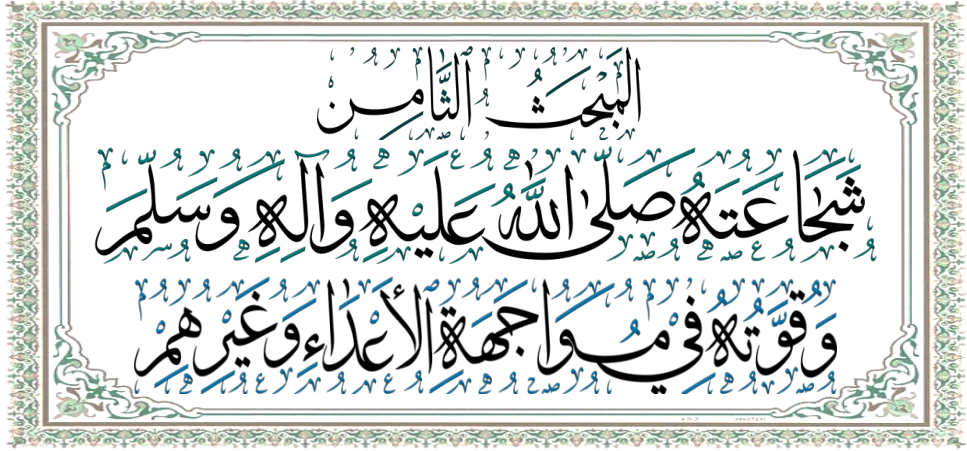 المَبْحَثُ الثَّامِن
شَجَاعَتَهُ صَلَّى اللَّهُ عَلَيْهِ وَآلِهِ وَسَلَّمَ
وَقُوَّتُهُ فِي مُوَاجَهَةِ الأَعْدَاءِ وَغَيْرِهِمْ